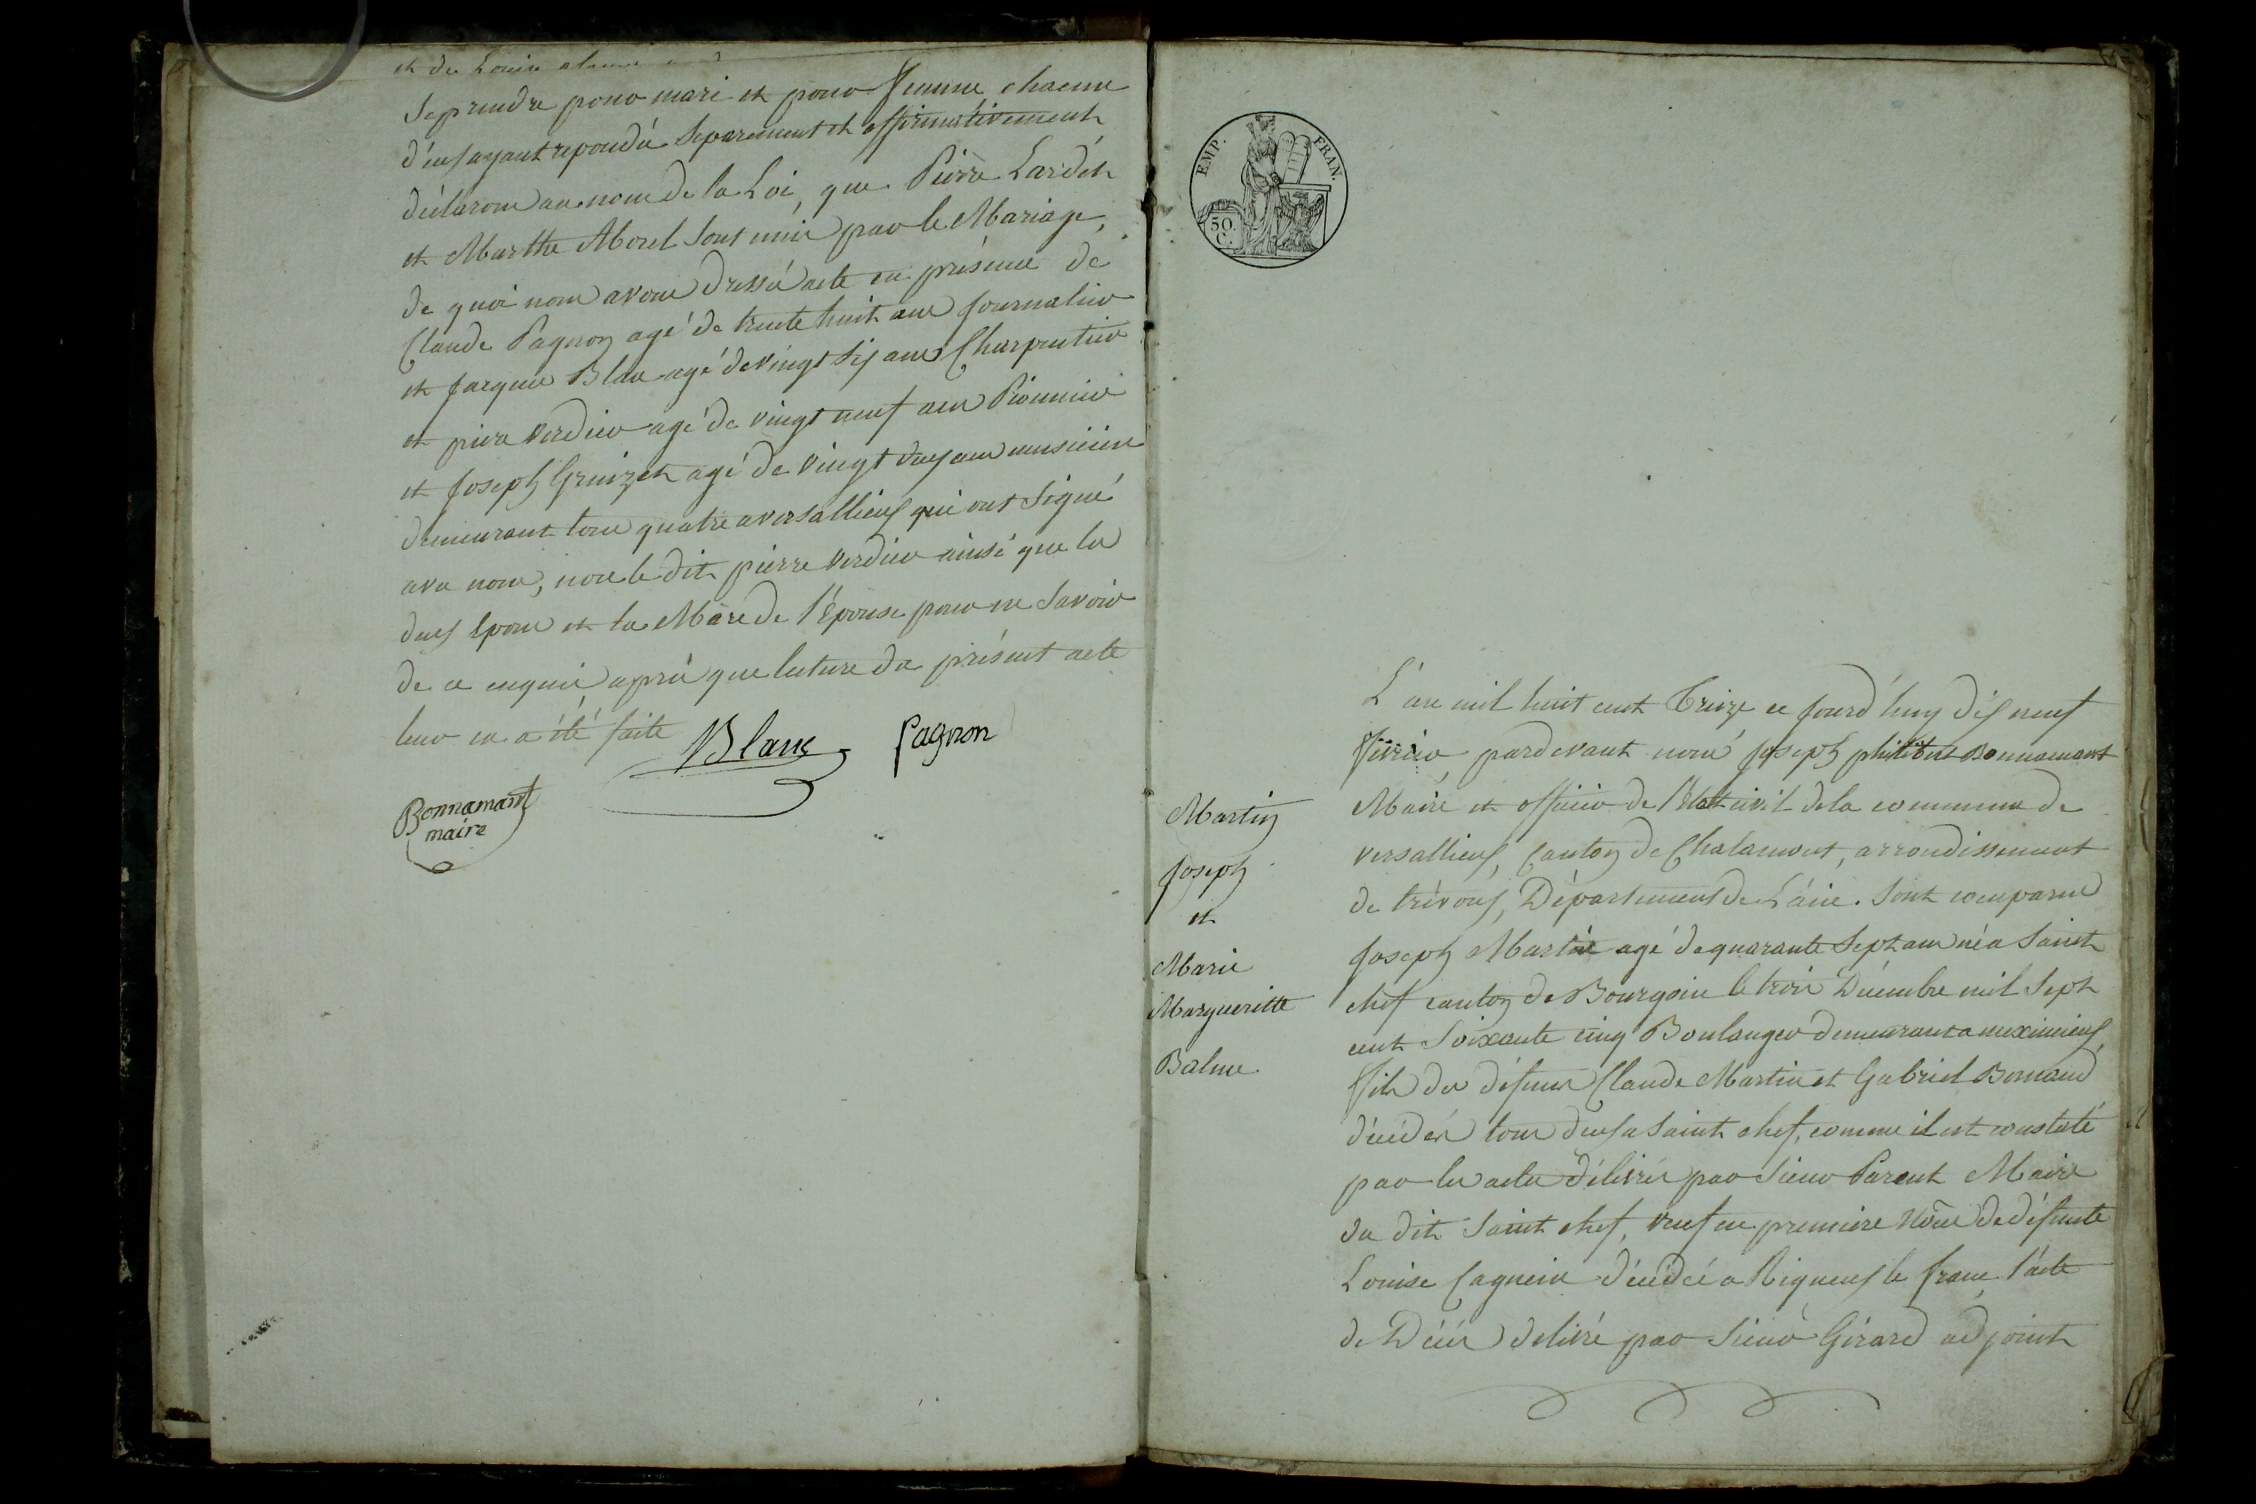 Se prendre pour mari et pour femme chacun
d'eux ayant repondu Separement et affirmativement
déclarons au nom de la Loi, que Pierre Lardet
et Marthe Morel Sont unis par le Mariage,
de quoi nous avons dressé acte en présence de
Claude Pagnon agé de trente huit ans journalier
et jacques Blanc agé de vingt Six ans Charpentier
et pierre Verdier agé de vingt neuf ans
et joseph Gruizet agé de vingt deux ans musicien
demeurant tous quatre a versallieux qui ont Signé
avec nous, non le dit pierre verdier ainsi que les
deux Epoux et la Mère de l'épouse pour ne Savoir
de ce enquis après que lecture du présent acte
leur en a été faite
Blanc Pagnon
Bonnamant
maire
EMP. FRAN.
50.
C.
Martin
joseph
et
Marie
Margueritte
Balme
L'an mil huit cent Treize ce jourd'huy dix neuf
fevrier, pardevant nous joseph philibert Bonnamant
Maire et officier de l'Etat civil de la commune de
versallieux, Canton de Chalamont, arrondissement
de trévoux, Département de L'ain. Sont comparus
joseph Martin agé de quarante Sept ans né a Saint
chef canton de Bourgoin le trois Décembre mil Sept
cent Soixante cinq Boulanger demeurant a meximieux,
fils des défunts Claude Martin et Gabriel
décédés tous deux a Saint chef, comme il est constaté
par les actes délivrés par Sieur Parent Maire
du dit Saint chef, veuf en premiere Nôce de défunte
Louise décédé a Rigneux le franc, l'acte
de Décès delivré par Sieur Girard adjoint